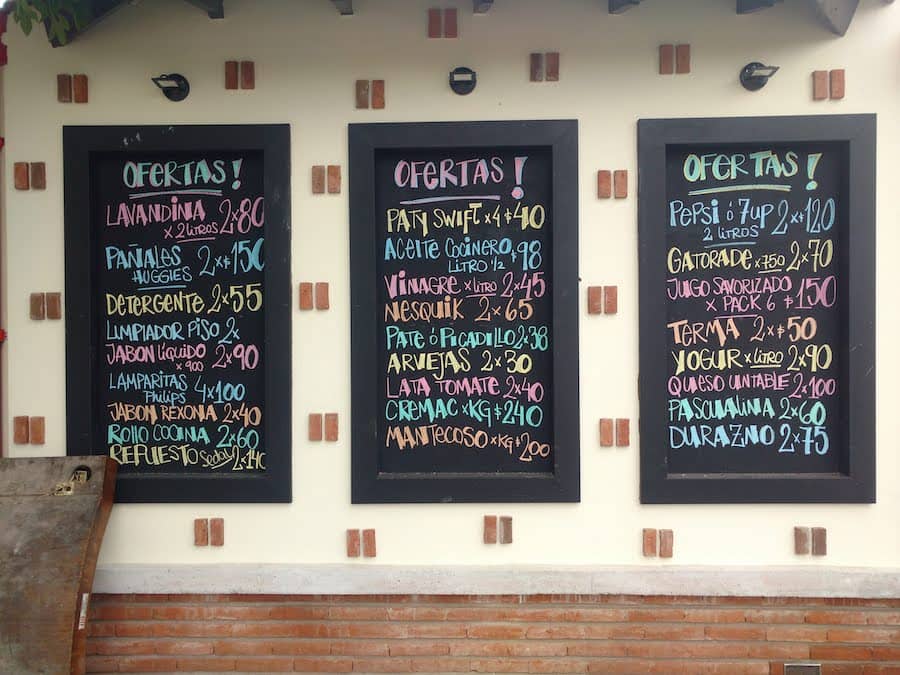 OFERTAS!
LAVANDINA 2x80
x 2 LITROS
PAÑALES 2x$150
HUGGIES
DETERGENTE 2x55
LIMPIADOR PISO 2x
JABON LíQUIDO 2x90
x 900
LAMPARITAS 4x100
PHILIPS
JABON REXONA 2x40
ROLLO COCINA 2x60
REFUESTO Sedal 2x140
OFERTAS!
PATY SWIFT x4 $40
ACEITE COCINERO $98
LITRO 1/2
VINAGRE x LITRO 2x45
NESQUIK 2x65
PATE ó PICADILLO 2x38
ARVEJAS 2x30
LATA TOMATE 2x40
CREMAC xKG $240
MANTECOSO xKG $200
OFERTAS!
PEPSI ó 7UP 2x$120
2 LITROS
GATORADE x750 2x70
JUGO SAVORIZADO $150
x PACK 6
TERMA 2x$50
YOGUR x LITRO 2x90
QUESO UNTABLE 2x100
PASCUALINA 2x60
DURAZNO 2x75